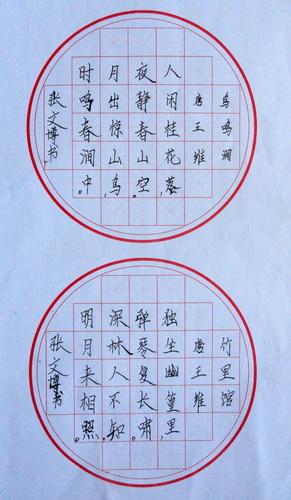 鸟鸣涧
唐王维
人闲桂花落,
夜静春山空。
月出惊山鸟,
时鸣春涧中。
张文博书
竹里馆
唐王维
独坐幽篁里,
弹琴复长啸。
深林人不知,
明月来相照。
张文博书